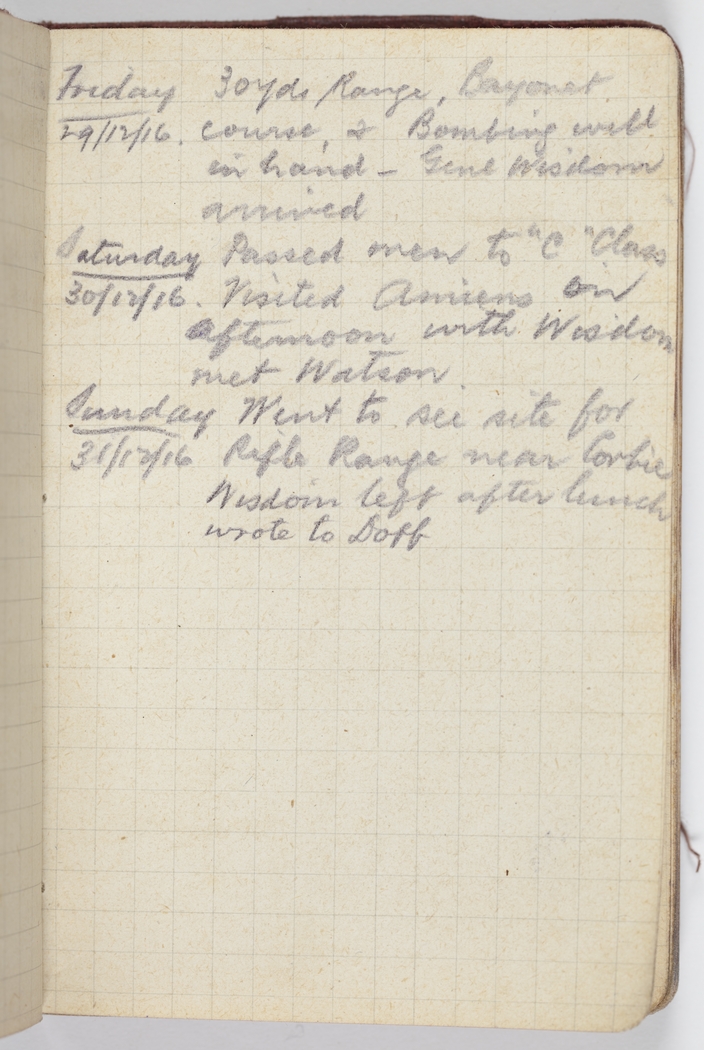 Friday 30yds Range, Bayonet
29/12/16. course, & Bombing well
in hand – Genl Wisdom
arrived
Saturday Passed men to "C" Class
30/12/16. Visited Amiens in
afternoon with Wisdom
met Watson
Sunday Went to see site for
31/12/16 Rifle Range near Corbie
Wisdom left after lunch
wrote to Doff